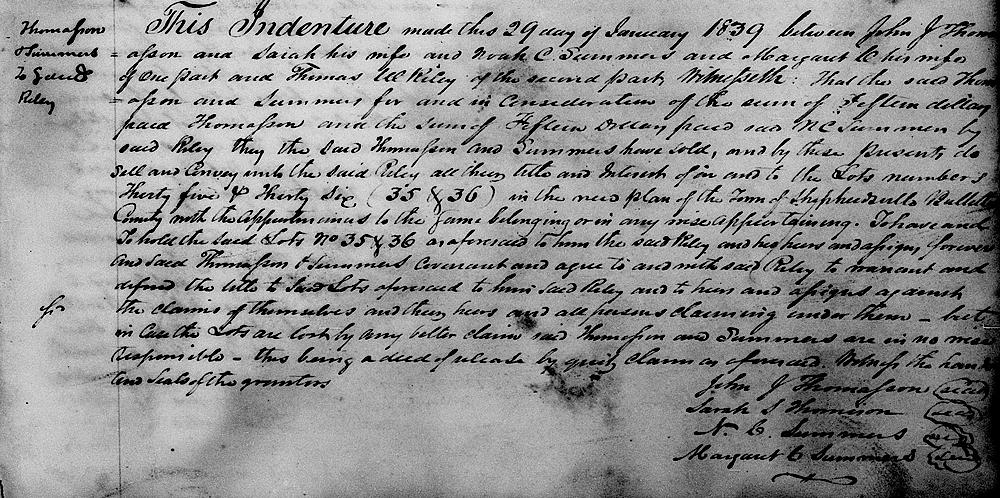 Thomasson
& Summers
To Deed
Riley
This Indenture made this 29 day of January 1839 between John J Thom
=asson and Sarah his wife and Noah C. Summers and Margaret C his wife
of One part and Thomas W Riley of the second part, Witnesseth: That the said Thom
=asson and Summers for and in Consideration of the sum of Fifteen dollars
paid Thomasson and the sum of Fifteen Dollars paid said N C Summers by
said Riley they the said Thomasson and Summers have sold, and by these presents do
Sell and Convey unto the said Riley all their title and Interest of in and to the Lots numbers
Thirty five & Thirty Six (35 & 36) in the new plan of the Town of Shepherdsville Bullitt
County with the Appurtenances to the same belonging or in any wise appertaining. To have and
To hold the said Lots No 35 & 36 as aforesaid to him the said Riley and his heirs and assigns forever
and said Thomasson & Summers Covenant and agree to and with said Riley to warrant and
defend the title to said Lots aforesaid to him said Riley and to heirs and assigns against
the claims of themselves and their heirs and all persons claiming under them – but
in Case the Lots are lost by any better claim said Thomasson and Summers are in no wise
responsible – this being a deed of release by quit Claim as aforesaid Witness the hands
and seals of the grantors
John J Thomasson (seal)
Sarah S Thomason (seal)
N. C. Summers (seal)
Margaret C Summers (seal)